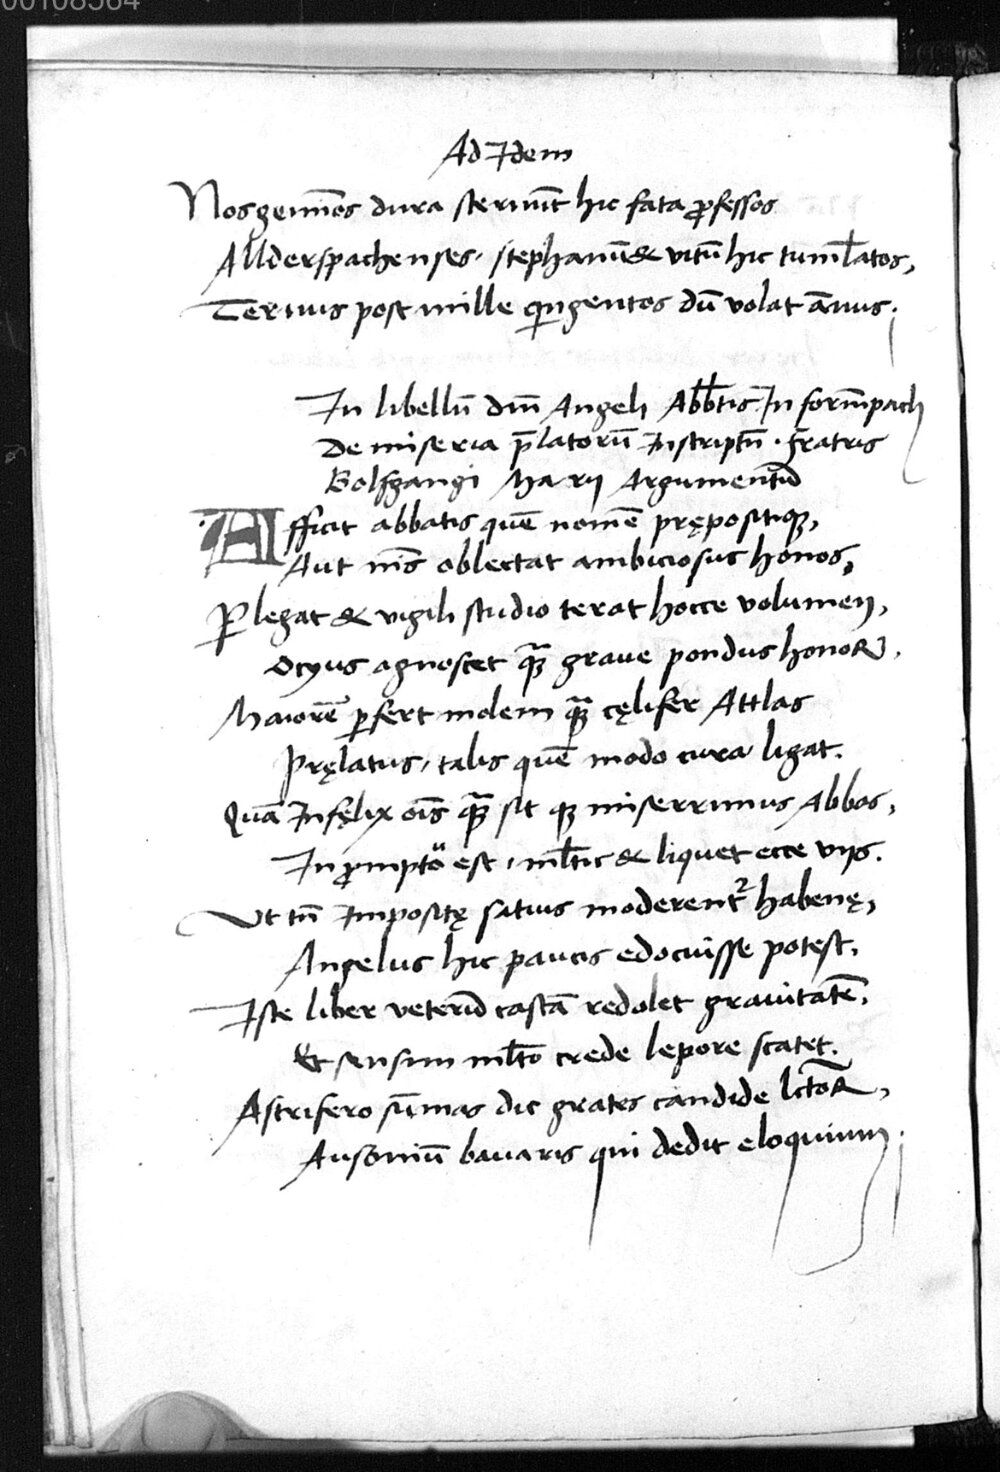 00108564
Ad Idem
Nos gemĩos dura sterniũt hic fata ꝓfessos
Allderspachenses, stephanũ & vitũ hic tuml̃atos,
Tertius post mille qͥngentos dũ volat ãnus.
In libellũ dñi Angeli Abb̃tis In form̃pach
De miseria p̃latorũ Inscriptũ. fratris
Bolfgangi Marij Argumentũ
Afficit abbatis quẽ nomẽ prępositiqꝫ,
Aut nĩs oblectat ambiciosus honos,
Ꝑlegat & vigili studio terat hocce volumen,
Ocyus agnoscet qͣꝫ graue pondus honoꝝ.
Maiorẽ ꝑfert molem qͣꝫ cęlifer Attlas
Pręlatus, talis quẽ modo cura ligat.
Quã Infęlix oĩs qͣꝫ sit qꝫ miserrimus Abbas,
In ꝓmptu est, ml̃tis & liquet ecce viis.
Ut tñ Impositę satius moderentᷣ habenę,
Angelus hic paucis edocuisse potest.
Iste liber veterũ castã redolet grauitatẽ,
Et sensim ml̃to crede lepore scatet.
Astrifero sũmas dic grates candide lc̃toR,
Ausoniũ bauaris qui dedit eloquium.